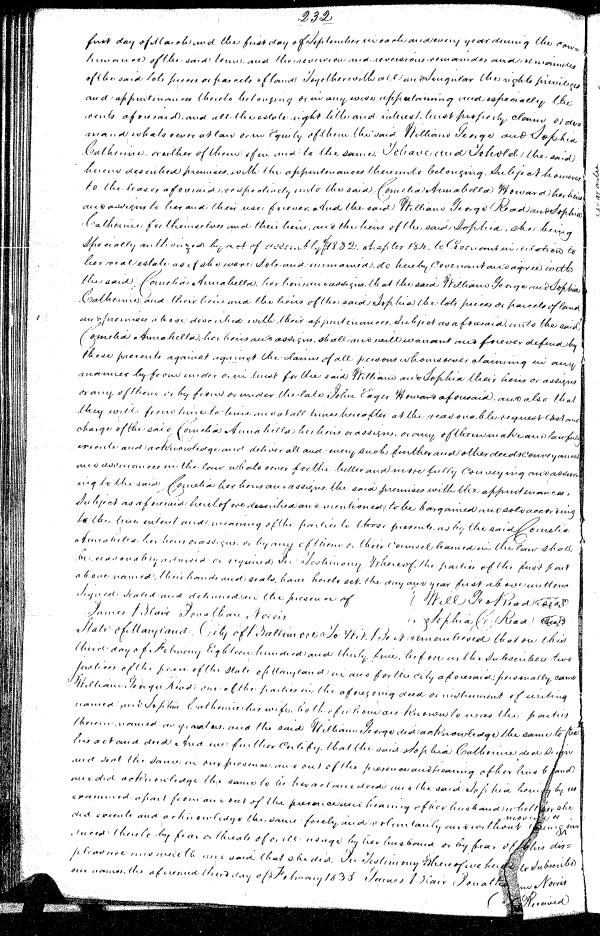 232
first day of March and the first day of September in each and every year during the con-
tinuance of the said term, and the reversion and reversions remainder and remainders
of the said lots pieces or parcels of land Together with all and singular the rights privileges
and appurtenances thereto belonging or in any wise appertaining and especially the
rents aforesaid, and all the estate right title and interest, trust property claim or de-
mand whatsoever at law or in Equity of them the said William George and Sophia
Catherine, or either of them of in and to the same, To have and To hold, the said
herein described premises, with the appurtenances thereunto belonging, Subject however
to the leases aforesaid, respectively unto the said Cornelia Annabella Howard her heirs
and assigns to her and their use forever. And the said William George Read and Sophia
Catherine for themselves and their heirs, and the heirs of the said Sophia, she being
specially authorized by act of assembly of 1832 chapter to Covenant in relation to
her real estate as if she were Sole and unmarried, do hereby Covenant and agree with
the said Cornelia Annabella, her heirs and assigns, that the said William George and Sophia
Catherine, and their heirs and the heirs of the said Sophia the lots pieces or parcels of land
and premises above described with their appurtenances, Subject as aforesaid, unto the said
Cornelia Annabella, her heirs and assigns, shall and will warrant and forever defend by
these presents against against the claims of all persons whomsoever claiming in any
manner by from under or in trust for the said William and Sophia their heirs or assigns
or any of them or by from or under the late John Eager Howard aforesaid, and also that
they will from time to time and at all times hereafter at the reasonable request Cost and
charge of the said Cornelia Annabella her heirs or assigns, or any of them make and lawfully
execute and acknowledge and deliver all and every such further and other deeds conveyances
and assurances in the law whatsoever for the better and more fully Conveying and assur-
ing to the said Cornelia her heirs and assigns, the said premises with the appurtenances,
Subject as aforesaid herein before described and mentioned, to be bargained and sold according
to the true intent and meaning of the parties to these presents, as by the said Cornelia
Annabella her heirs or assigns, or by any of them or their Counsel learned in the law shall
be reasonably advised or required. In Testimony Whereof, the parties of the first part
above named, their hands and seals, have hereto set the day and year first above written
Signed Sealed and delivered in the presence of Will Geo Read Seal
James Blair Jonathan Norris Sophia C. Read Seal
State of Maryland, City of Baltimore To Wit: Be it remembered that on this
third day of February Eighteen hundred and thirty five, before us the Subscribers two
Justices of the peace of the State of Maryland in and for the City aforesaid, personally came
William George Read one of the parties in the aforegoing deed or instrument of writing
named and Sophia Catherine his wife, both of whom are known to us as the parties
therein named as grantors, and the said William George did acknowledge the same to be
his act and deed. And we further certify, that the said Sophia Catherine did Sign
and seal the same in our presence and out of the presence and hearing of her husband
and did acknowledge the same to be her act and deed and the said Sophia being by us
examined apart from and out of the presence and hearing of her husband whether she
did execute and acknowledge the same freely and voluntarily and without being in-
duced thereto by fear or threats of or ill usage by her husband or by fear of his dis-
pleasure answereth and said that she did. In Testimony Whereof we hereto Subscribe
our names, the aforesaid third day of February 1835 James Blair Jonathan Norris
Received